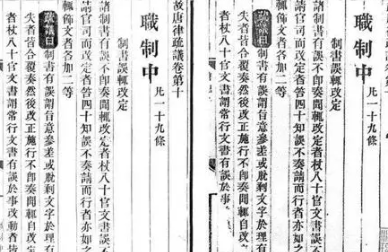 職制中 凡一十九條
制書誤輒改定
諸制書有誤不即奏聞輒改定者杖八十官文書誤不
請官司而改定者笞四十知誤不奏請而行者亦如之
輒飾文者各加二等
疏議曰制書有誤謂旨意參差或脫剩文字於理有
失者皆合覆奏然後改正施行不即奏聞輒自改定
者杖八十官文書謂常行文書有誤於事
故唐律疏議卷第十
職制中 凡一十九條
制書誤輒改定
諸制書有誤不即奏聞輒改定者杖八十官文書誤不
請官司而改定者笞四十知誤不奏請而行者亦如之
輒飾文者各加二等
疏議曰制書有誤謂旨意參差或脫剩文字於理有
失者皆合覆奏然後改正施行不即奏聞輒自改定
者杖八十官文書謂常行文書有誤於事改動者皆